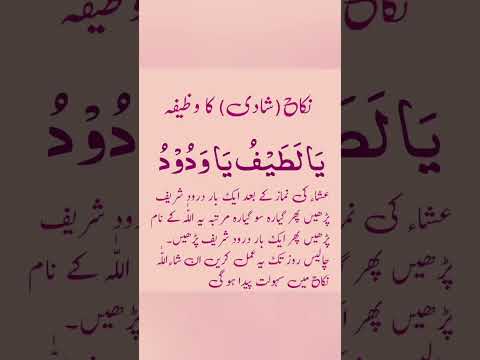 نکاح (شادی) کا وظیفہ
يَا لَطَيْفُ يَا وَدُوْدُ
عشاء کی نماز کے بعد ایک بار درود شریف
پڑھیں پھر گیارہ سو گیارہ مرتبہ یہ اللّٰہ کے نام
پڑھیں پھر ایک بار درود شریف پڑھیں۔
چالیس روز تک یہ عمل کریں ان شاءاللّٰہ
نکاح میں سہولت پیدا ہو گی